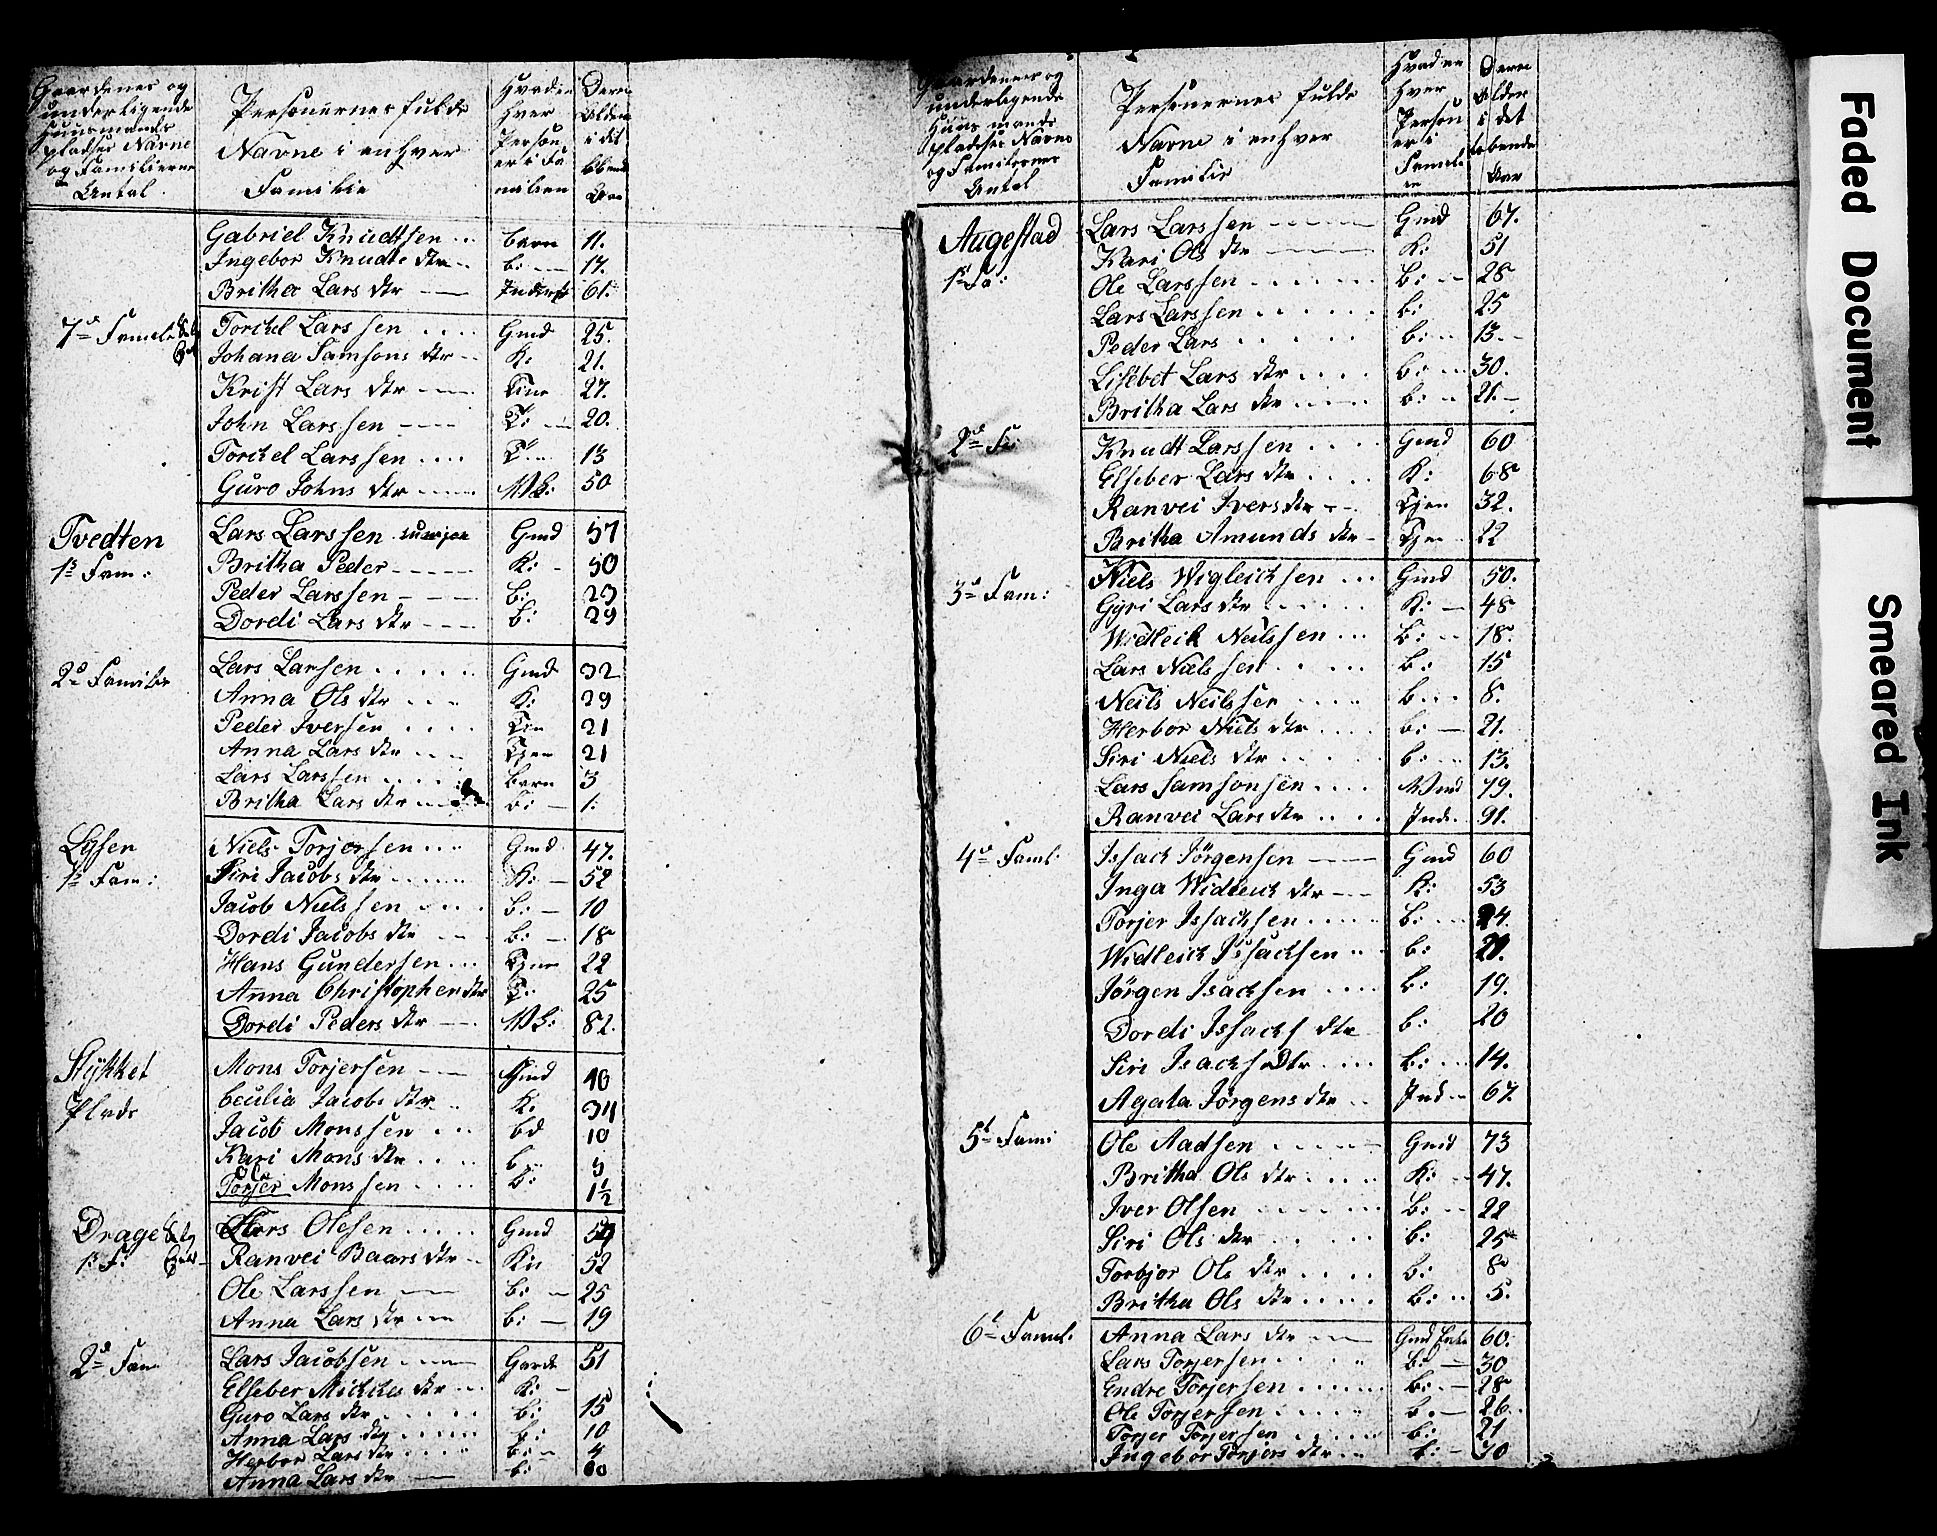 Gaardenes og
underligende
Huusmands
pladser Navne
og Familiernes
Antal
Personernes fulde
Navne i enhver
Familie
Hvad en
hver
Person
er i Fa
milien
Deres
Alder
i det
løbende
Aar
Gabriel Knudtsen barn 11.
Ingebor Knudts dtr b: 17.
Britha Lars dtr Inderst 61.
7de Famele Torkel Larssen Gmd 25.
Johana Samsons dtr K: 21.
Krist Lars dtr Tiene 27.
John Larssen T: 20.
Torkel Larssen T 13
Guro Johns dtr 50
Tvedten Lars Larssen Gmd 57
1s Fam: Britha Peder K: 50
Peder Larssen b: 23
Dordi Lars dtr b: 29
2d Familie Lars Larsen Gmd 32
Anna Ols dtr K: 29
Peder Iversen Tien 21
Anna Lars dtr Tjen 21
Lars Larssen barn 3
Britha Lars dtr b: 1.
Lysen Niels Torjersen Gmd 47.
1s Fam: Siri Jacobs dtr K: 52
Jacob Nielssen b: 10
Dordi Jacobs dtr b: 18
Hans Gundersen Tjen 22
Anna Christophersdtr T: 25
Dordi Peders dtr 82.
Stykket Mons Torjersen Gmd 40
Plads Cecilia Jacobs dtr K: 34
Jacob Monssen bd 10
Kari Mons dtr b: 5
Torjer Monssen b: 1½
Drage Lars Olesen Gmd
1s F: Ranvei Baars dtr Kn 52
Ole Larssen b: 25
Anna Lars dtr b: 19
2d Fam Lars Jacobsen Garde 51
Elseber Mickels dtr K:
Guro Lars dtr b: 15
Anna Lars dtr b: 10
Herbor Lars dtr b: 4
Anna Lars dtr b:
Gaardenes og
underligende
Huusmands
pladser Navne
og Familiernes
Antal
Personernes fulde
Navne i enhver
Familie
Hvad en
hver
Person
er i
Famili
en
Deres
Alder
i det
løbende
Aar
Augestad Lars Larssen Gmd 67.
1s Fa: Kari Ols dtr K: 51
Ole Larssen b: 28
Lars Larssen b: 25
Peder Lars b: 13.
Lisebet Lars dtr b: 30.
Britha Lars dtr b: 21.
2d Fa: Knudt Larssen Gmd 60
Elseber Lars dtr K: 68
Ranvei Iversdtr Tjen 32.
Britha Amunds dtr Tjen 22
3d Fam: Niels Wigleichsen Gmd 50.
Gyri Lars dtr K: 48
Widleik Neilssen b: 18.
Lars Nielssen b: 15
Neils Neilssen b. 8.
Herbor Niels dtr b: 21.
Siri Niels dtr b: 13.
Lars Samsonsen 79.
Ranvei Lars dtr Ind. 91.
4d Faml: Issach Jörgensen Gmd 60
Inga Widleick dtr K: 53
Torjer Issachsen b: 24.
Widleich Issachsen b: 21.
Jörgen Isachsen b: 19.
Dordi Issachs dtr b: 20
Siri Isachs Dtr b: 14.
Agata Jörgens dtr Ind 67.
5t Fam: Ole Aadsen Gmd 73
Britha Ols dtr K: 47.
Iver Olsen b: 22
Siri Ols dtr b: 25
Torbjor Ols dtr b: 8
Britha Ols dtr b: 5.
6t Faml. Anna Lars dtr Gmd Enke 60.
Lars Torjersen b: 30
Endre Torjersen b: 28
Ole Torjersen b. 26.
Torjer Torjersen b: 21
Ingebor Torjers dtr b: 30
Faded Document
Smeared Ink